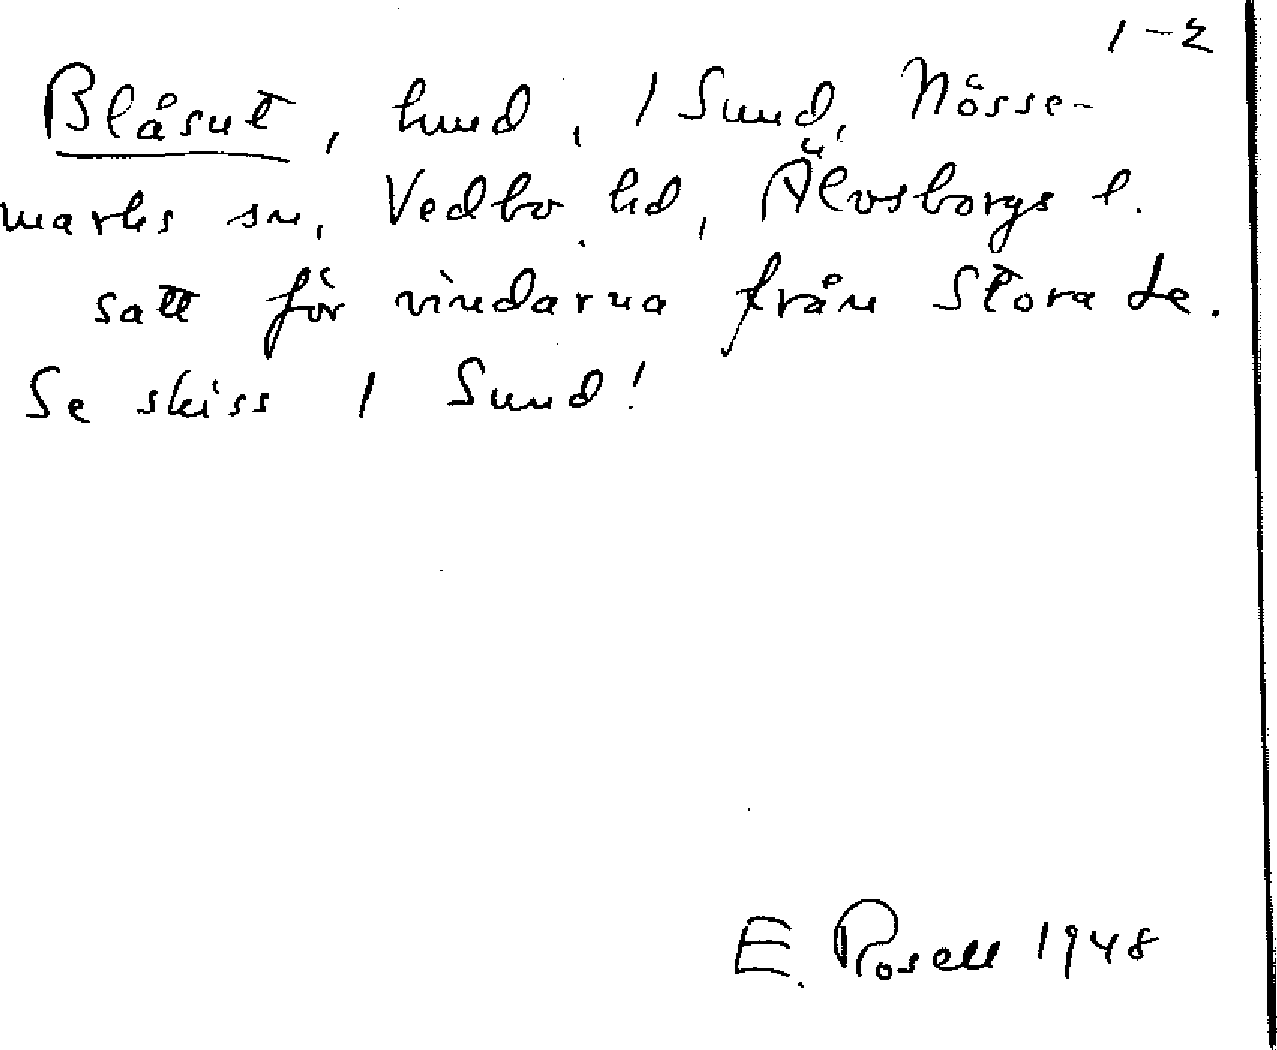 1-2
Blåsut, 1 Sund, Nösse-
marks sn, Vedbo hd, Älvsborgs l.
satt för vindarna från Stora Le.
Se skiss 1 Sund!
E. Rosell 1948